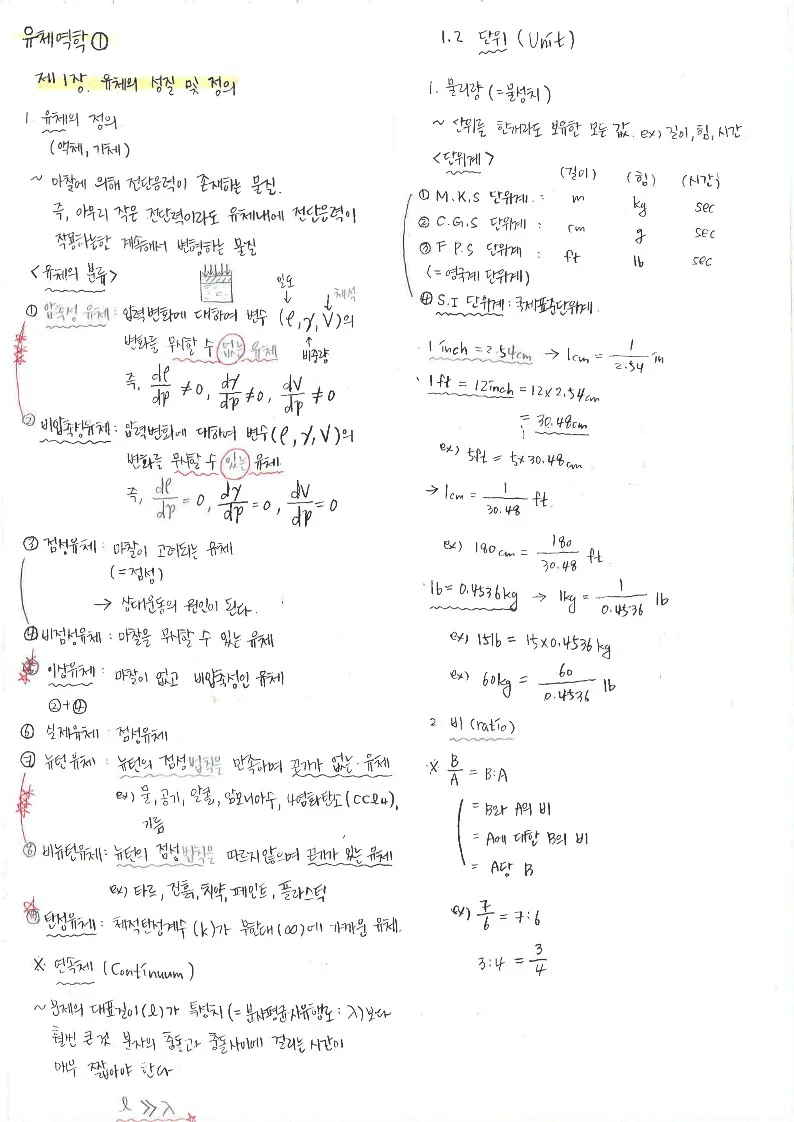 유체역학①
제1장. 유체의 성질 및 정의
1. 유체의 정의
(액체, 기체)
~ 마찰에 의해 전단응력이 존재하는 물질.
즉, 아무리 작은 전단력이라도 유체내에 전단응력이
작용하는한 계속해서 변형하는 물질
<유체의 분류>
밀도
체적
① 압축성 유체 : 압력변화에 대하여 변수 (ρ, γ, V)의
변화를 무시할 수 없는 유체
비중량
즉, dρ/dp ≠ 0, dγ/dp ≠ 0, dV/dp ≠ 0
② 비압축성유체 : 압력변화에 대하여 변수(ρ, γ, V)의
변화를 무시할 수 있는 유체.
즉, dρ/dp = 0, dγ/dp = 0, dV/dp = 0
③ 점성유체 : 마찰이 고려되는 유체
(=점성)
→ 상대운동의 원인이 된다.
④ 비점성유체 : 마찰을 무시할 수 있는 유체
⑤ 이상유체 : 마찰이 없고 비압축성인 유체
②+④
⑥ 실제유체 : 점성유체
⑦ 뉴턴유체 : 뉴턴의 점성법칙을 만족하며 끈기가 없는 유체
ex) 물, 공기, 알콜, 암모니아수, 4염화탄소(CCl4),
기름
⑧ 비뉴턴유체 : 뉴턴의 점성법칙을 따르지않으며 끈기가 있는 유체
ex) 타르, 진흙, 치약, 페인트, 플라스틱
탄성유체 : 체적탄성계수 (k)가 무한대(∞)에 가까운 유체.
※ 연속체 (Continuum)
~ 문제의 대표길이(ℓ)가 특성치(=분자평균자유행로 : λ)보다
훨씬 큰것 분자의 충돌과 충돌사이에 걸리는 시간이
매우 짧아야 한다
ℓ ≫ λ
1.2 단위 (Unit)
1. 물리량 (=물성치)
~ 단위를 한개라도 보유한 모든 값. ex) 길이, 힘, 시간
<단위계> (길이) (힘) (시간)
① M.K.S 단위계 : m kg sec
② C.G.S 단위계 : cm g sec
③ F.P.S 단위계 : ft lb sec
(=영국계 단위계)
④ S.I 단위계 : 국제표준단위계.
1 inch = 2.54cm → 1cm = 1/2.54 in
1ft = 12inch = 12×2.54cm
= 30.48cm
ex) 5ft = 5×30.48cm
→ 1cm = 1/30.48 ft.
ex) 180cm = 180/30.48 ft
lb = 0.4536kg → 1kg = 1/0.4536 lb
ex) 15lb = 15×0.4536kg
ex) 60kg = 60/0.4536 lb
2. 비 (ratio)
※ B/A = B:A
= B와 A의 비
= A에 대한 B의 비
= A당 B
ex) 7/6 = 7:6
3:4 = 3/4